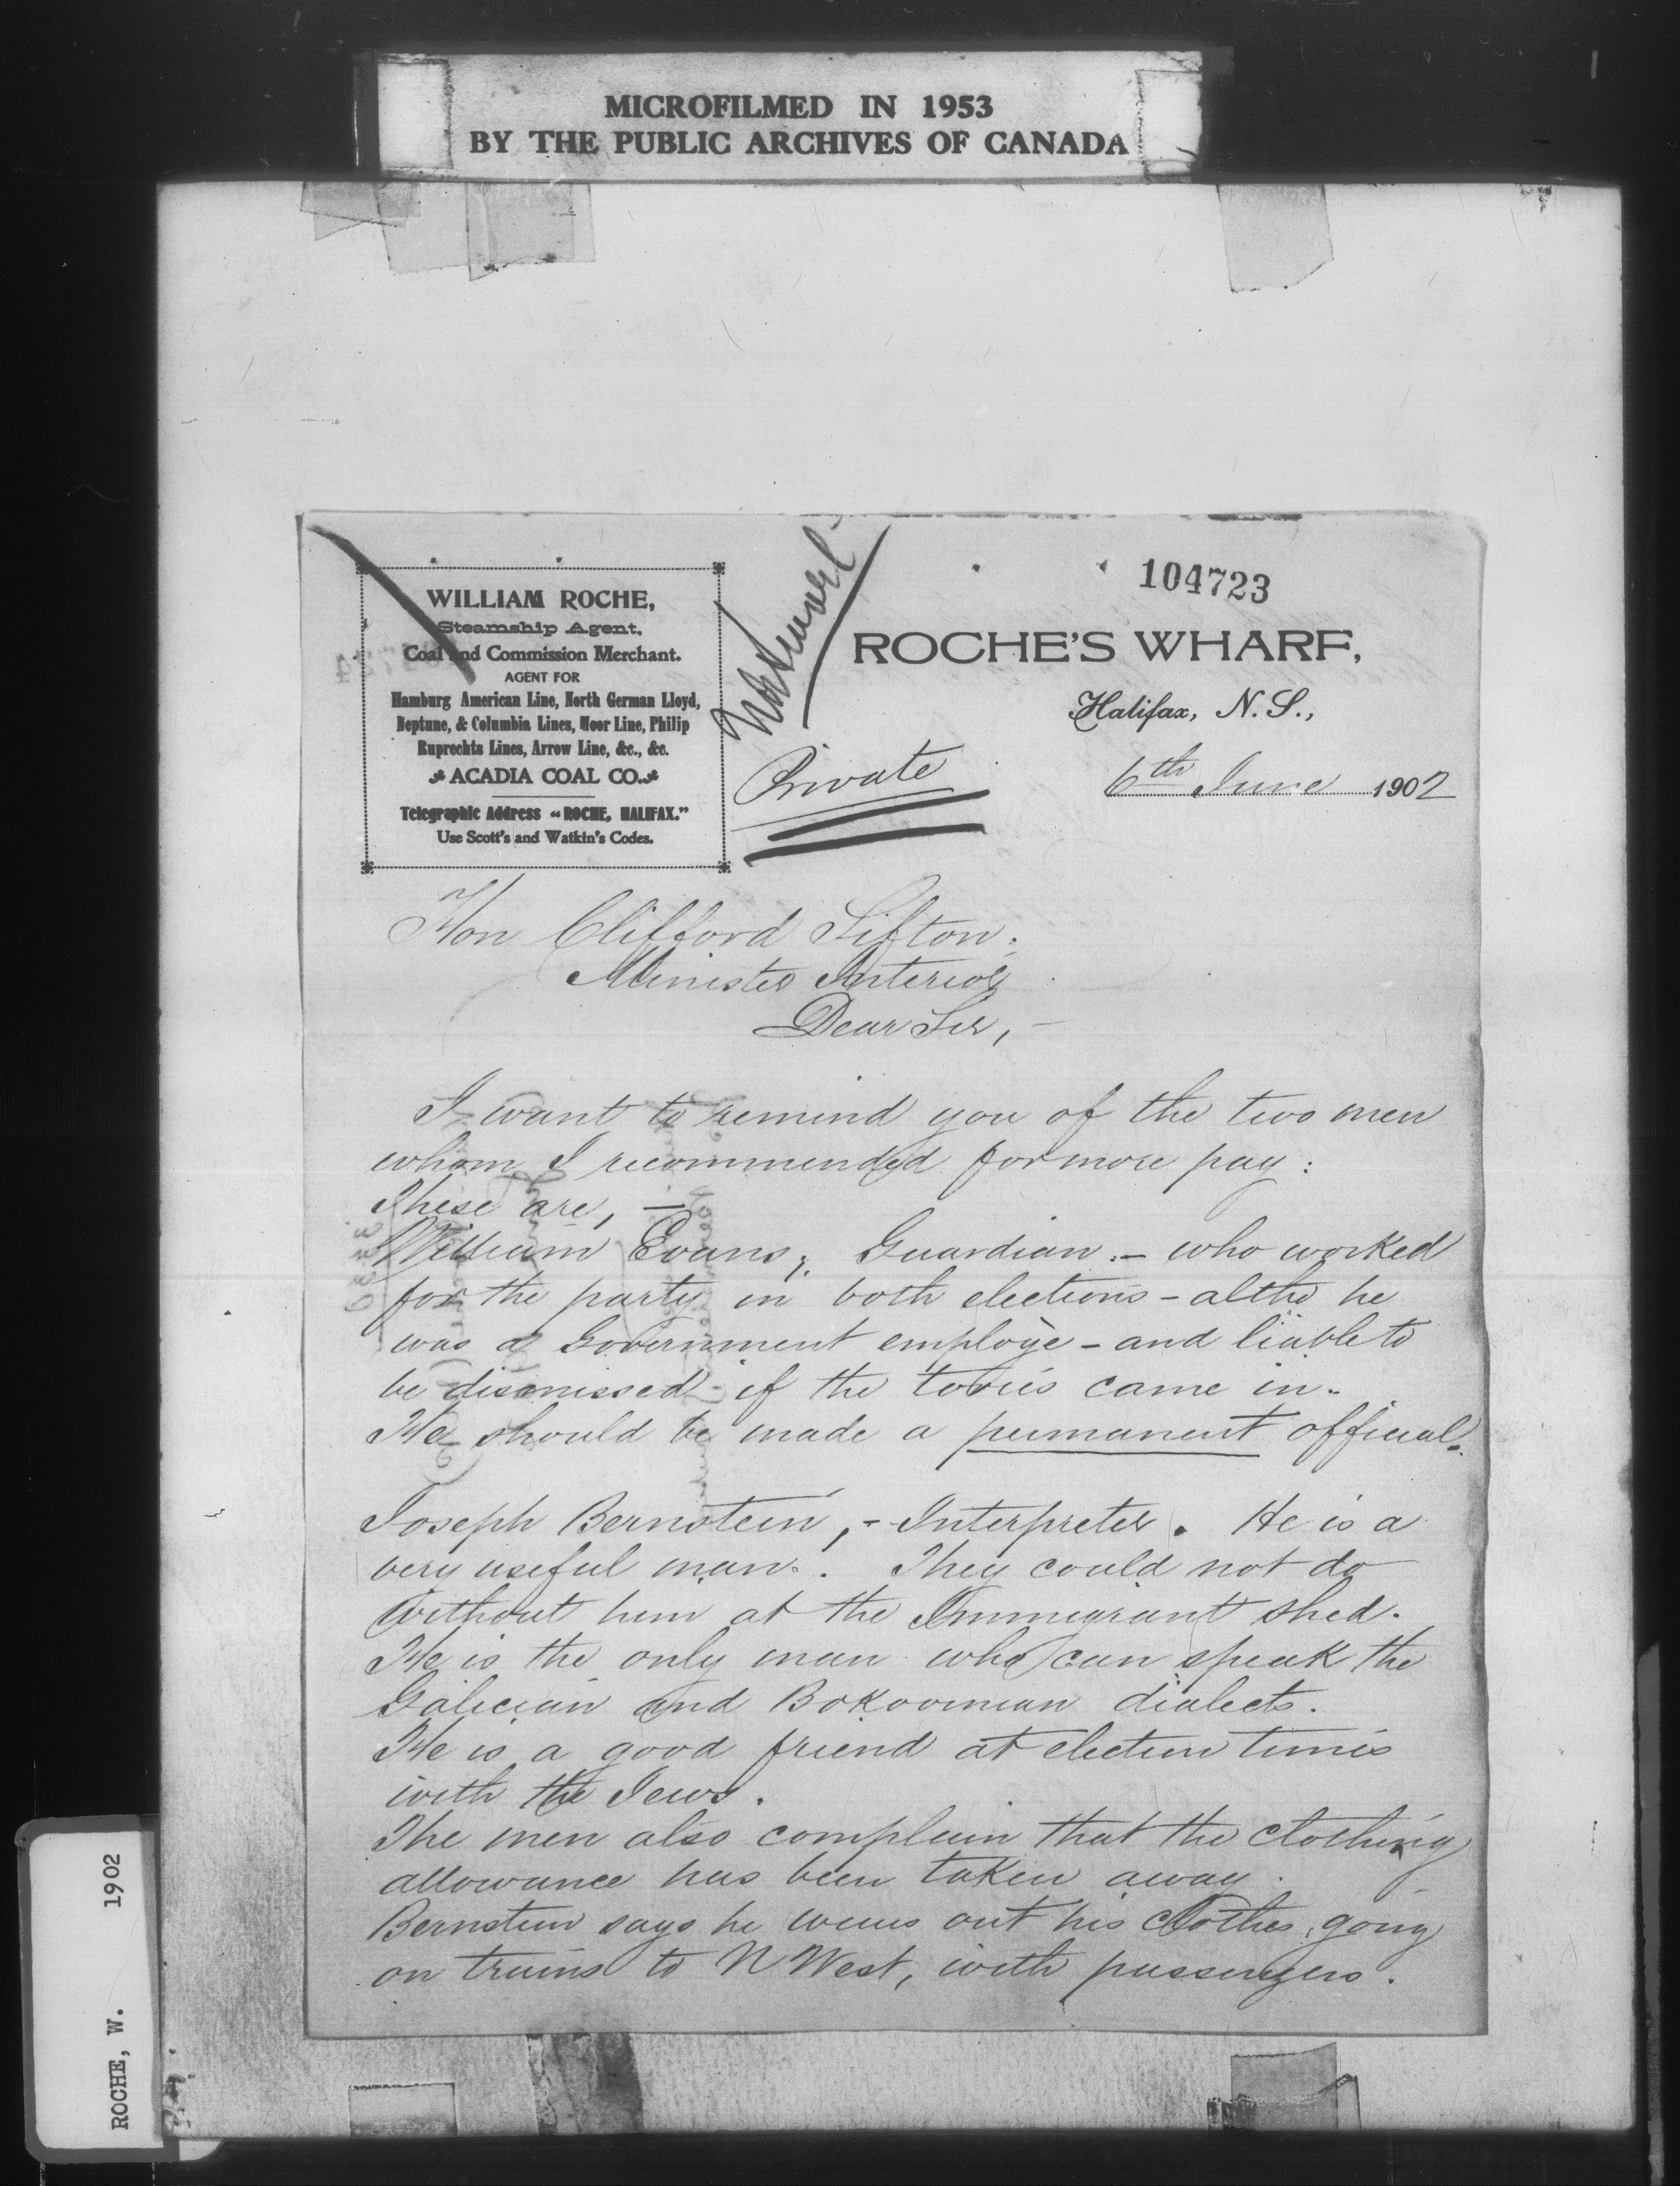 MICROFILMED IN 1953
BY THE PUBLIC ARCHIVES OF CANADA
104723
WILLIAM ROCHE,
Steamship Agent,
Coal and Commission Merchant.
AGENT FOR
Hamburg American Line, North German Lloyd,
Neptune, & Columbia Lines, Moor Line, Philip
Ruprechts Lines, Arrow Line, &c., &c.
ACADIA COAL CO.
Telegraphic Address "ROCHE, HALIFAX."
Use Scott's and Watkin's Codes.
Private
ROCHE'S WHARF,
Halifax, N.S.,
6th June 1902
Hon Clifford Sifton.
Minister Interior
Dear Sir, –
I want to remind you of the two men
whom I recommended for more pay:
These are, –
William Evans, Guardian – who worked
for the party in both elections – altho he
was a Government employe – and liable to
be dismissed if the tories came in.
He should be made a permanent official.
Joseph Bernstein, – Interpreter. He is a
very useful man. They could not do
without him at the Immigrant shed.
He is the only man who can speak the
Galician and Bokovinian dialects.
He is a good friend at election times
with the Jews.
The men also complain that the clothing
allowance has been taken away.
Bernstein says he wears out his clothes, going
on trains to N West, with passengers.
ROCHE, W. 1902